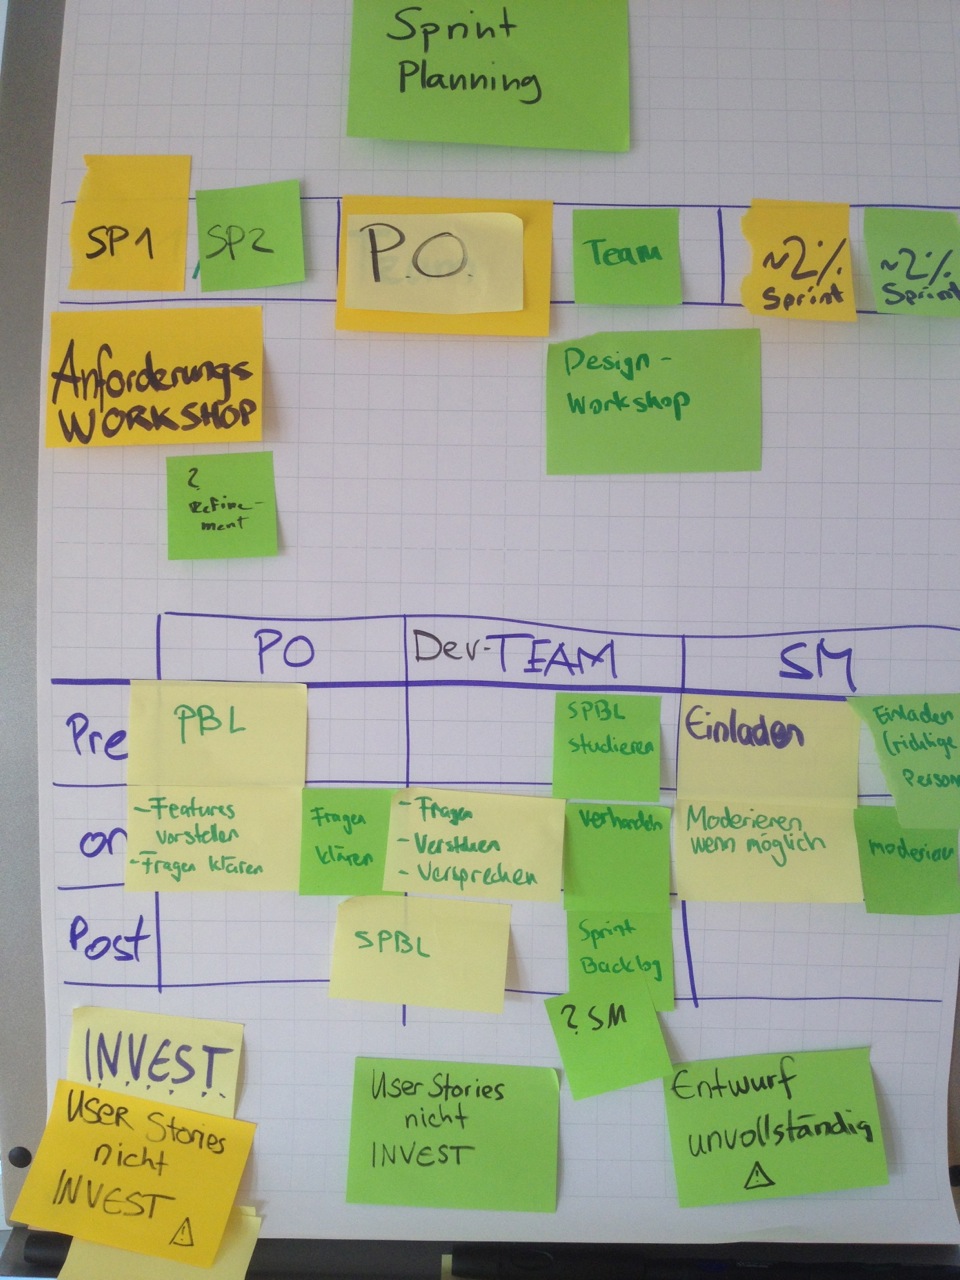 Sprint
Planning
SP1
SP2
P.O.
Team
~2%
Sprint
~2%
Sprint
Anforderungs
WORKSHOP
Design-
Workshop
?
Refine-
ment
PO
Dev-TEAM
SM
Pre
PBL
SPBL
studieren
Einladen
Einladen
(richtige
Person
on
-Features
vorstellen
-Fragen klären
Fragen
klären
- Fragen
- Verstehen
- Versprechen
Verhandeln
Moderieren
wenn möglich
Post
SPBL
Sprint
Backlog
? SM
I.N.V.E.S.T.
USER Stories
nicht
INVEST
User Stories
nicht
INVEST
Entwurf
unvollständig